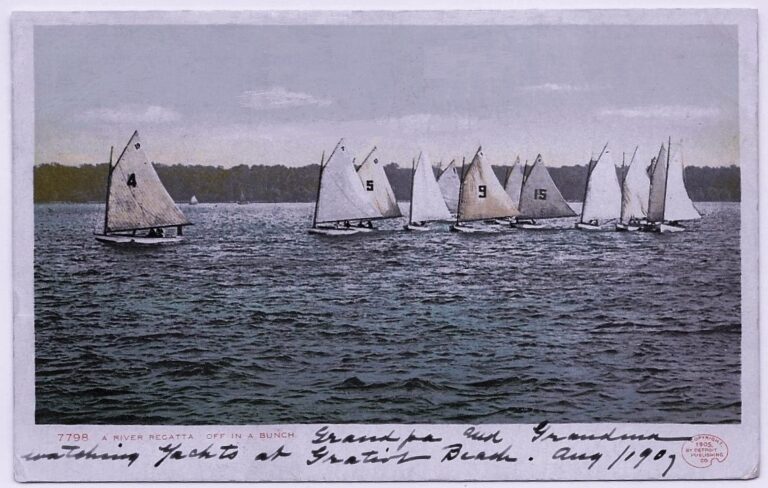 4
5
9
15
7798 A RIVER REGATTA OFF IN A BUNCH.
Grandpa and Grandma
watching Yachts at Gratiot Beach. Aug / 1907
COPYRIGHT
1905,
BY DETROIT
PUBLISHING
CO.